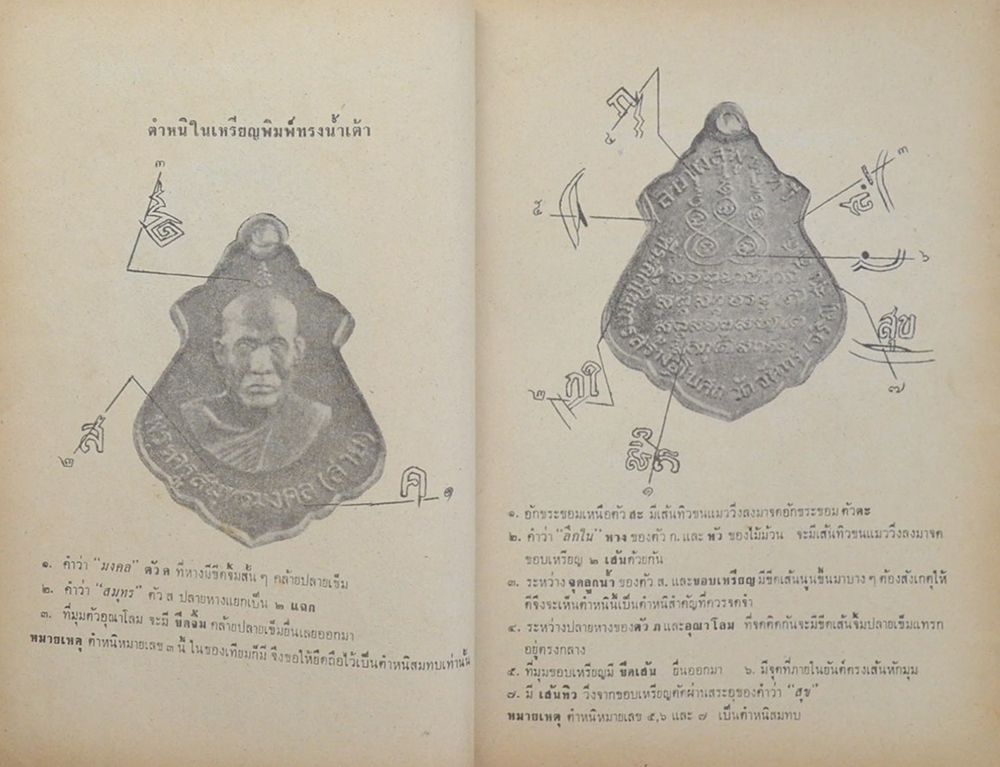 ตำหนิในเหรียญพิมพ์ทรงน้ำเต้า
๓
ส
๒
ค
๑
๑. คำว่า "มงคล" ตัว ค ที่หางมีขีดจิ้มสั้น ๆ คล้ายปลายเข็ม
๒. คำว่า "สมุทร" ตัว ส ปลายหางแยกเป็น ๒ แฉก
๓. ที่มุมตัวอุณาโลม จะมี ขีดจิ้ม คล้ายปลายเข็มยื่นเลยออกมา
หมายเหตุ ตำหนิหมายเลข ๓ นี้ ในของเทียมก็มี จึงขอให้ยึดถือไว้เป็นตำหนิสมทบเท่านั้น
ภ
๔
๓
๕
๖
สุข
๗
๒
๑
๑. อักขระขอมเหนือตัว สะ มีเส้นทิวขนแมววิ่งลงมาจดอักขระขอม ตัวตะ
๒. คำว่า "อีกใน" หาง ของตัว ก. และ หัว ของไม้ม้วน จะมีเส้นทิวขนแมววิ่งลงมาจด
ขอบเหรียญ ๒ เส้นด้วยกัน
๓. ระหว่าง จุดลูกน้ำ ของตัว ส. และขอบเหรียญ มีขีดเส้นนูนขึ้นมาบาง ๆ ต้องสังเกตุให้
ดีจึงจะเห็นตำหนินี้เป็นตำหนิสำคัญที่ควรจดจำ
๔. ระหว่างปลายหางของตัว ภ และอุณาโลม ที่จดติดกันจะมีขีดเส้นจิ้มปลายเข็มแทรก
อยู่ตรงกลาง
๕. ที่มุมขอบเหรียญมี ขีดเส้น ยื่นออกมา ๖. มีจุดที่ภายในยันต์ตรงเส้นหักมุม
๗. มี เส้นทิว วิ่งจากขอบเหรียญตัดผ่านสระอุของคำว่า "สุข"
หมายเหตุ ตำหนิหมายเลข ๕,๖ และ ๗ เป็นตำหนิสมทบ